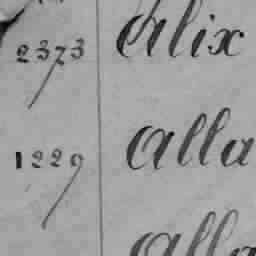 2373 Alix
1229 Alla